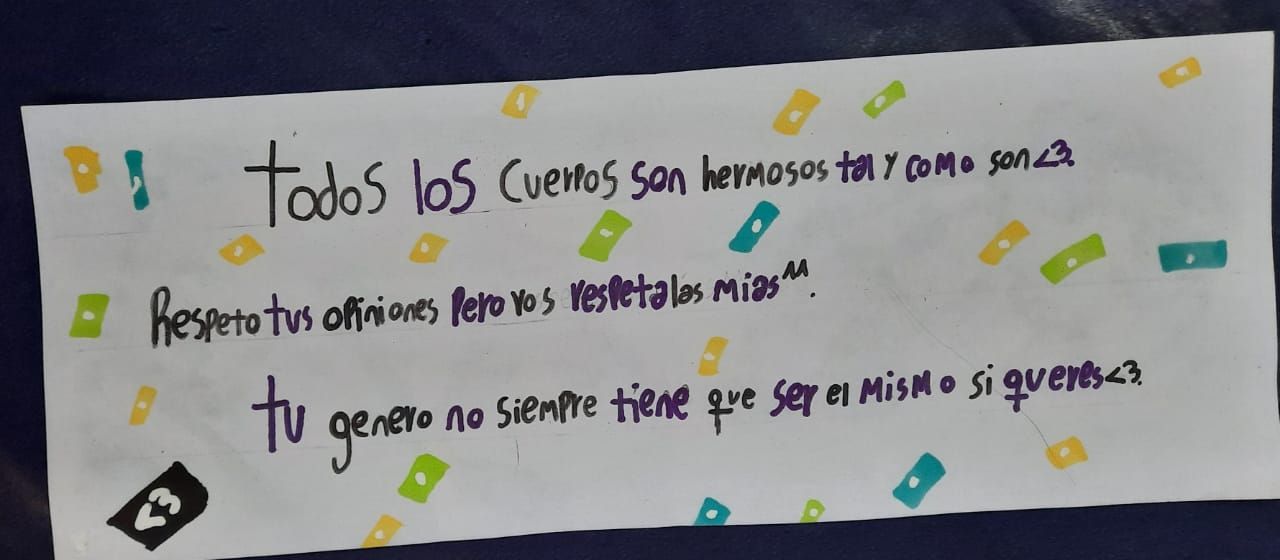 Todos los Cuerpos son hermosos tal y como son<3.
Respeto tus opiniones pero vos respeta las mias^^.
tu genero no siempre tiene que ser el mismo si queres<3.
<3